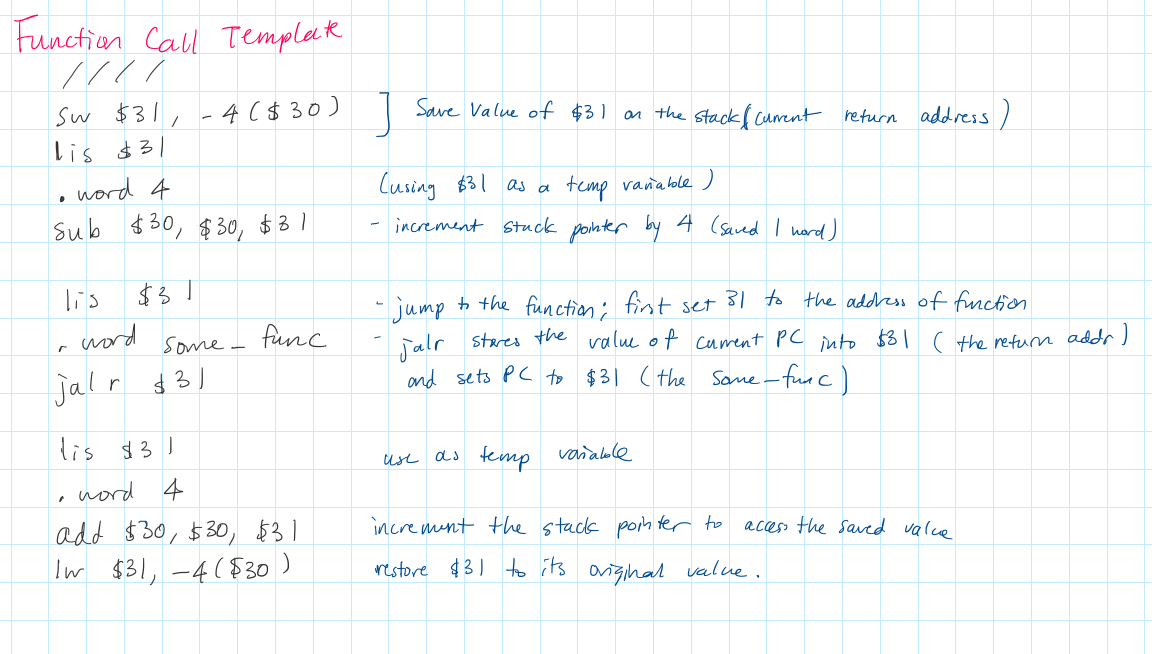 Function Call Template
////
sw $31, -4($30) ] Save Value of $31 on the stack (current return address)
lis $31
.word 4 (using $31 as a temp variable)
sub $30, $30, $31 - increment stack pointer by 4 (saved 1 word)
lis $31 - jump to the function; first set 31 to the address of function
.word some_func - jalr stores the value of current PC into $31 (the return addr)
jalr $31 and sets PC to $31 (the some_func)
lis $31 use as temp variable
.word 4
add $30, $30, $31 increment the stack pointer to access the saved value
lw $31, -4($30) restore $31 to its original value.